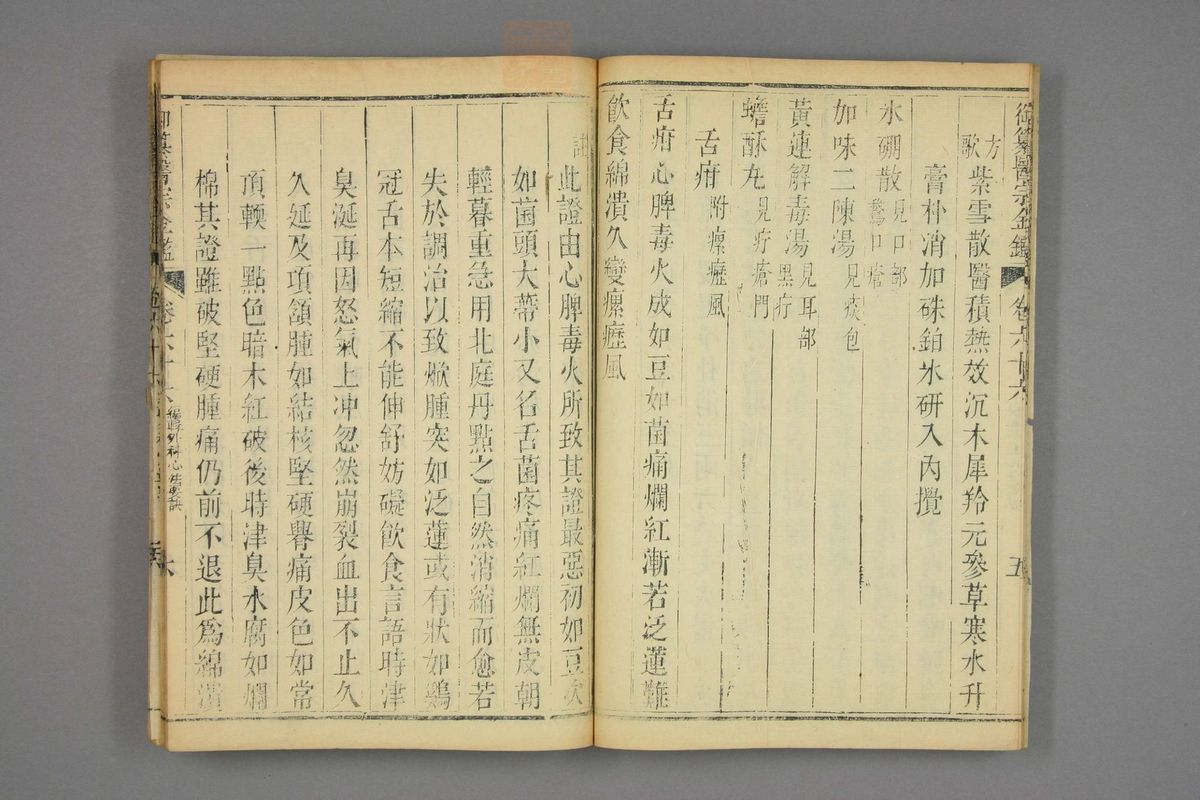 御纂醫宗金鑑 卷六十六 五
方歌 紫雪散醫積熱效沉木犀羚元參草寒水升
膏朴消加硃鉑氷研入內攪
氷硼散見口部鵞口瘡
加味二陳湯見痰包
黃連解毒湯見耳部黑疔
蟾酥丸見疔瘡門
舌疳附瘰癧風
舌疳心脾毒火成如豆如菌痛爛紅漸若泛蓮難
飲食綿潰久變瘰癧風
註 此證由心脾毒火所致其證最惡初如豆次
如菌頭大蒂小又名舌菌疼痛紅爛無皮朝
輕暮重急用北庭丹點之自然消縮而愈若
失於調治以致焮腫突如泛蓮或有狀如鷄
冠舌本短縮不能伸舒妨礙飲食言語時津
臭涎再因怒氣上冲忽然崩裂血出不止久
久延及項頷腫如結核堅硬臖痛皮色如常
頂軟一點色暗木紅破後時津臭水腐如爛
棉其證雖破堅硬腫痛仍前不退此爲綿潰
御纂醫宗金鑑 卷六十六 編輯外科心法要訣 六